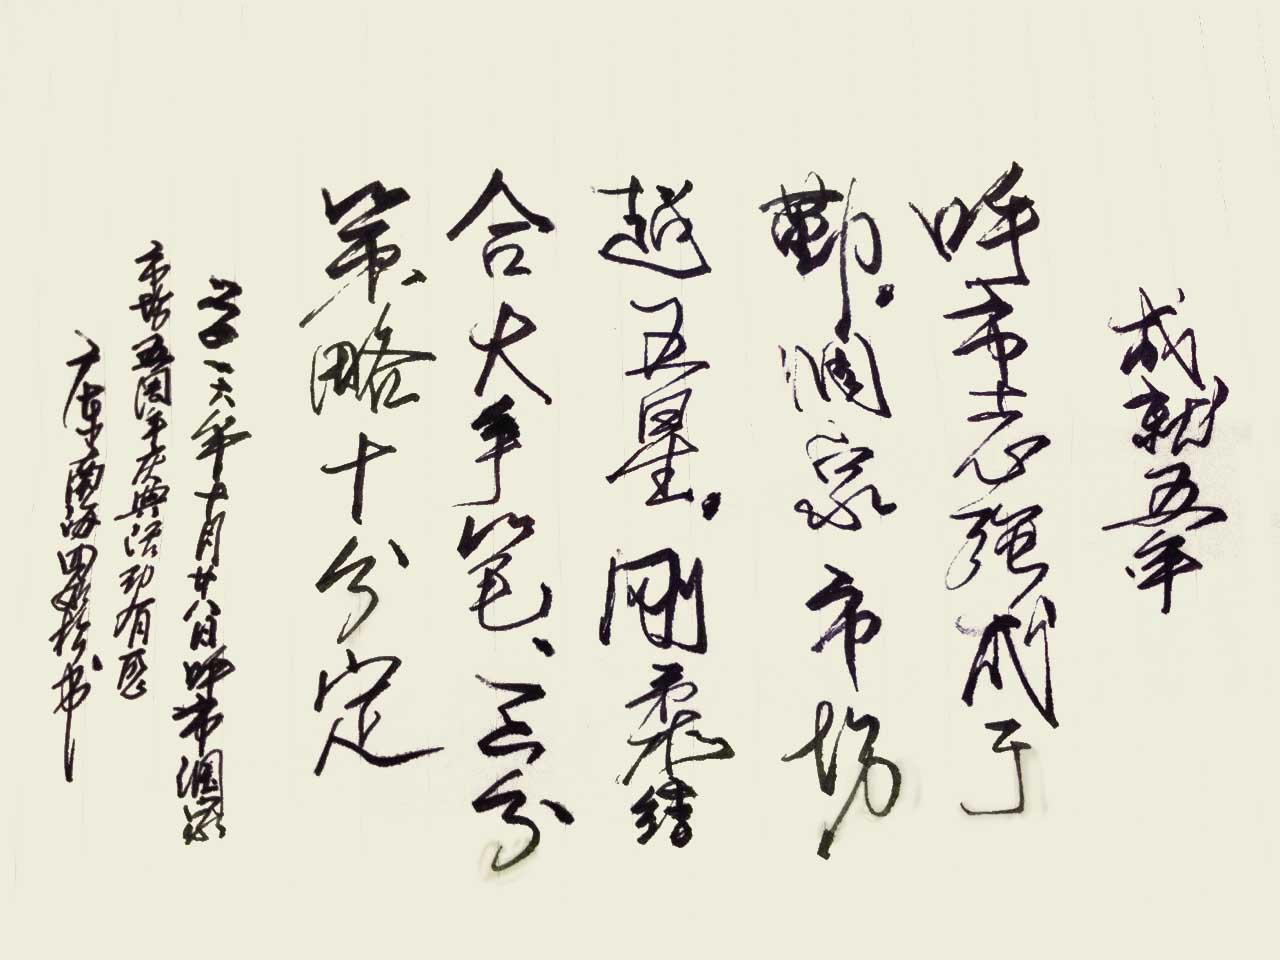 成就五年
呼市志强成于
勤。润家市场
越五星。刚柔结
合大手笔、三分
策略十分定
二〇一六年十月廿八日呼市润家
市场五周年庆典活动有感
广东南海四书